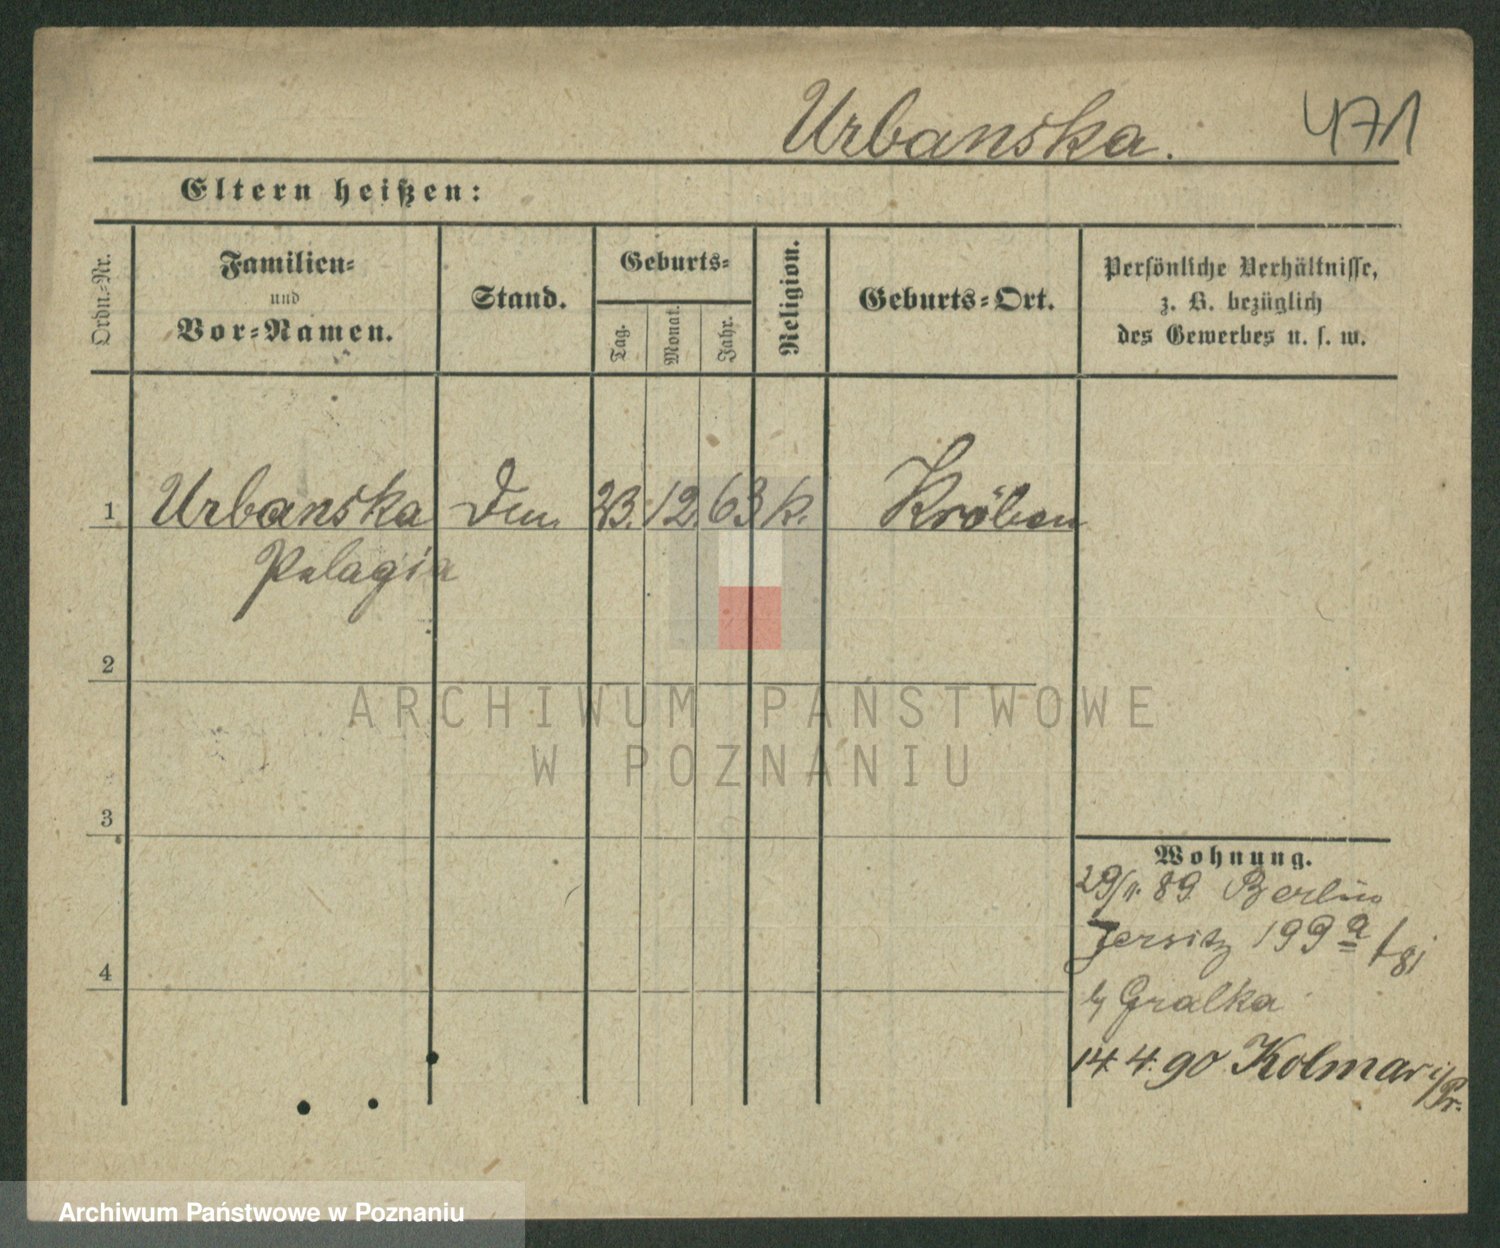 Urbanska. 471
Eltern heißen:
Ordn.-Nr.
Familien-
und
Vor-Namen.
Stand.
Geburts-
Tag.
Monat.
Jahr.
Religion.
Geburts-Ort.
Persönliche Verhältnisse,
z. B. bezüglich
des Gewerbes u. s. w.
1 Urbanska 23. 12. 63 k. Kröben
Pelagia
2
ARCHIWUM PAŃSTWOWE
W POZNANIU
3
Wohnung.
29/11. 89 Berlin
Jersitz 199 a
4
Gralka
14. 4. 90 Kolmar i/Pr.
Archiwum Państwowe w Poznaniu